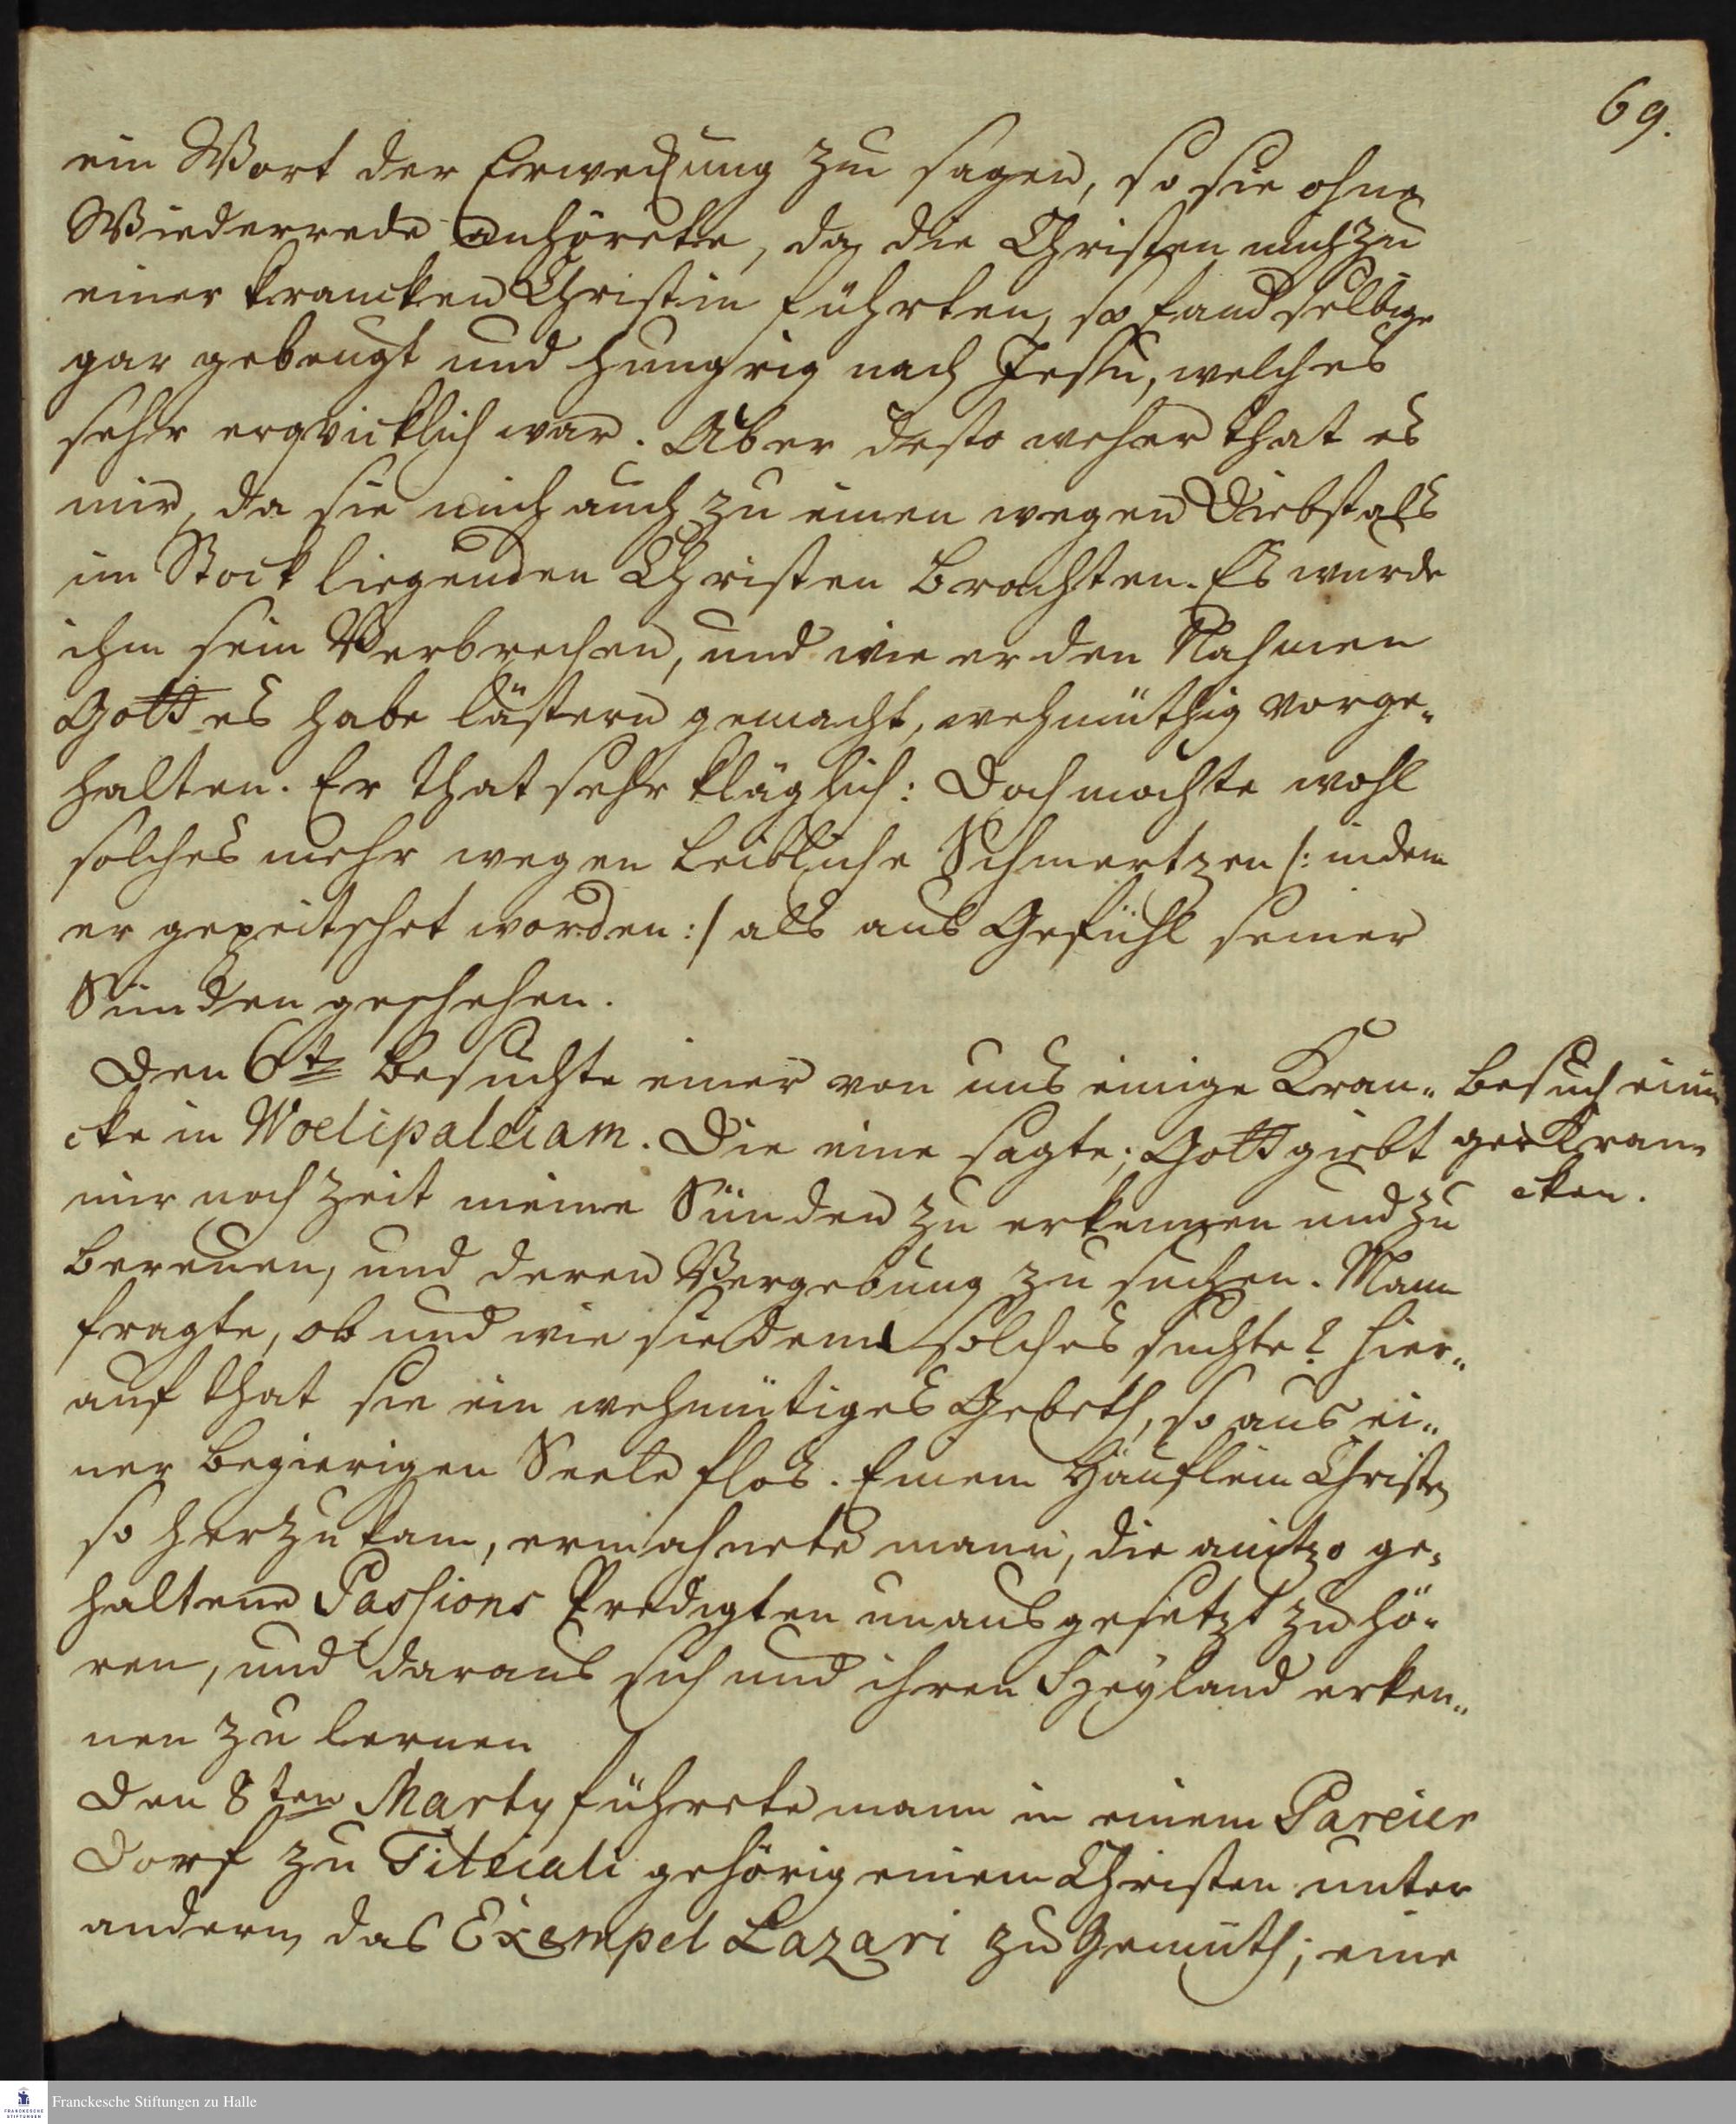 69.
ein Wort der Erweckung zu sagen, so sie ohne
Wiederrede anhörete, da die Christen mich zu
einer krancken Christin führten, so fand selbige
gar gebeugt und hungrig nach Jesu, welches
sehr erqvicklich war. Aber desto weher that es
mir, da sie mich auch zu einen wegen Diebstals
im Stock liegenden Christen brachten. Es wurde
ihm sein Verbrechen, und wie er den Nahmen
Gottes habe lästern gemacht, wehmüthig vorge-
halten. Er that sehr kläglich: Doch mochte wohl
solches mehr wegen leibliche Schmertzen /: indem
er gepeitschet worden :/ als aus Gefühl seiner
Sünden geschehen.
Den 6t besuchte einer von uns einige Kran-
cke in Woelipaleiam. Die eine sagte; Gott giebt
mir noch Zeit meine Sünden zu erkennen und zu
bereuen, und deren Vergebung zu suchen. Mann
fragte, ob und wie sie denn solches suchte? hier-
auf that sie ein wehmütiges Gebeth, so aus ei-
ner begierigen Seele flos. Einem Häuflein Christen
so herzu kam, ermahnete mann, die anitzo ge-
haltene Passions Predigten unausgesetzt zu hö-
ren, und daraus sich und ihren Heyland erken-
nen zu lernen
Den 8ten Marty führete mann in einem Pareier
Dorf zu Titeiali gehörig einem Christen unter
andern das Exempel Lazari zu Gemüth; eine
Besuch eini
ger Kran
cken.
Franckesche Stiftungen zu Halle
FRANCKESCHE
STIFTUNGEN